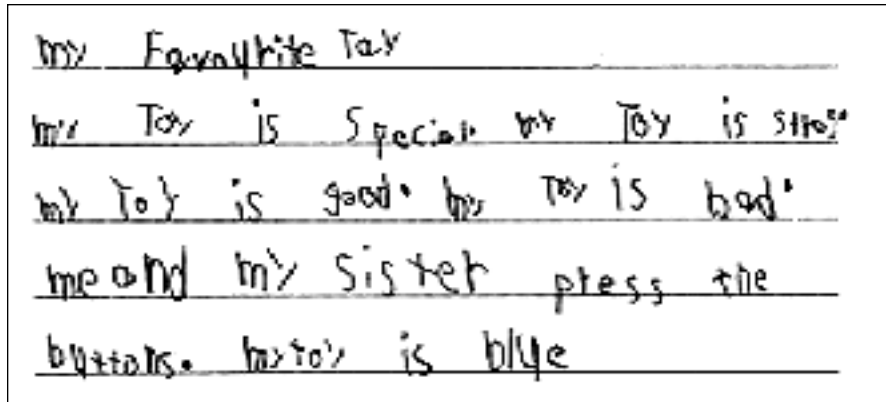 my Favourite Toy
my Toy is Special. my Toy is
my Toy is good. my Toy is bad.
me and my sister press the
buttons. my toy is blue